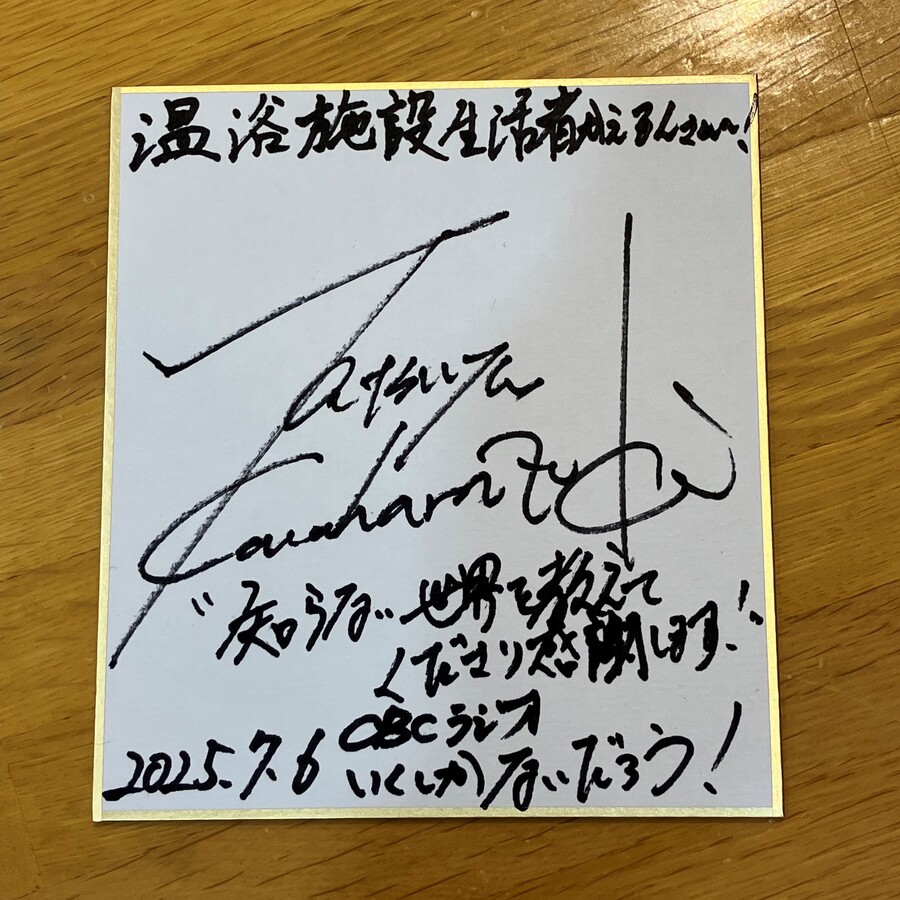 温浴施設生活者かえるんさんへ!
Tatsuya
"知らない世界を教えて
くださり感謝します!"
OBCラジオ
2025.7.6 いくしかないだろう!